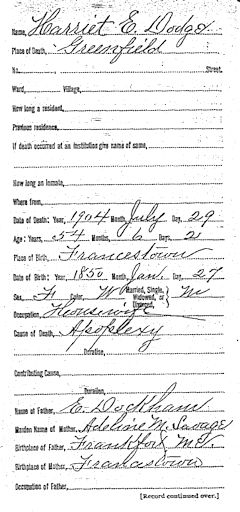 Name, Harriet E. Dodge
Place of Death, Greenfield
No. Street
Ward, Village,
How long a resident,
Previous residence,
If death occurred at an institution give name of same,
How long an inmate,
Where from,
Date of Death: Year, 1904 Month, July Day, 29
Age: Years, 54 Months, 6 Days, 2
Place of Birth, Francestown
Date of Birth: Year, 1850 Month, Jan. Day, 27
Sex, F Color, W Married, Single, Widowed, or Divorced, M
Occupation, Housewife
Cause of Death, Apoplexy
Duration,
Contributing Cause,
Duration,
Name of Father, E. Dockham
Maiden Name of Mother, Adeline M. Savage
Birthplace of Father, Frankfort Me.
Birthplace of Mother, Francestown
Occupation of Father,
[Record continued over.]